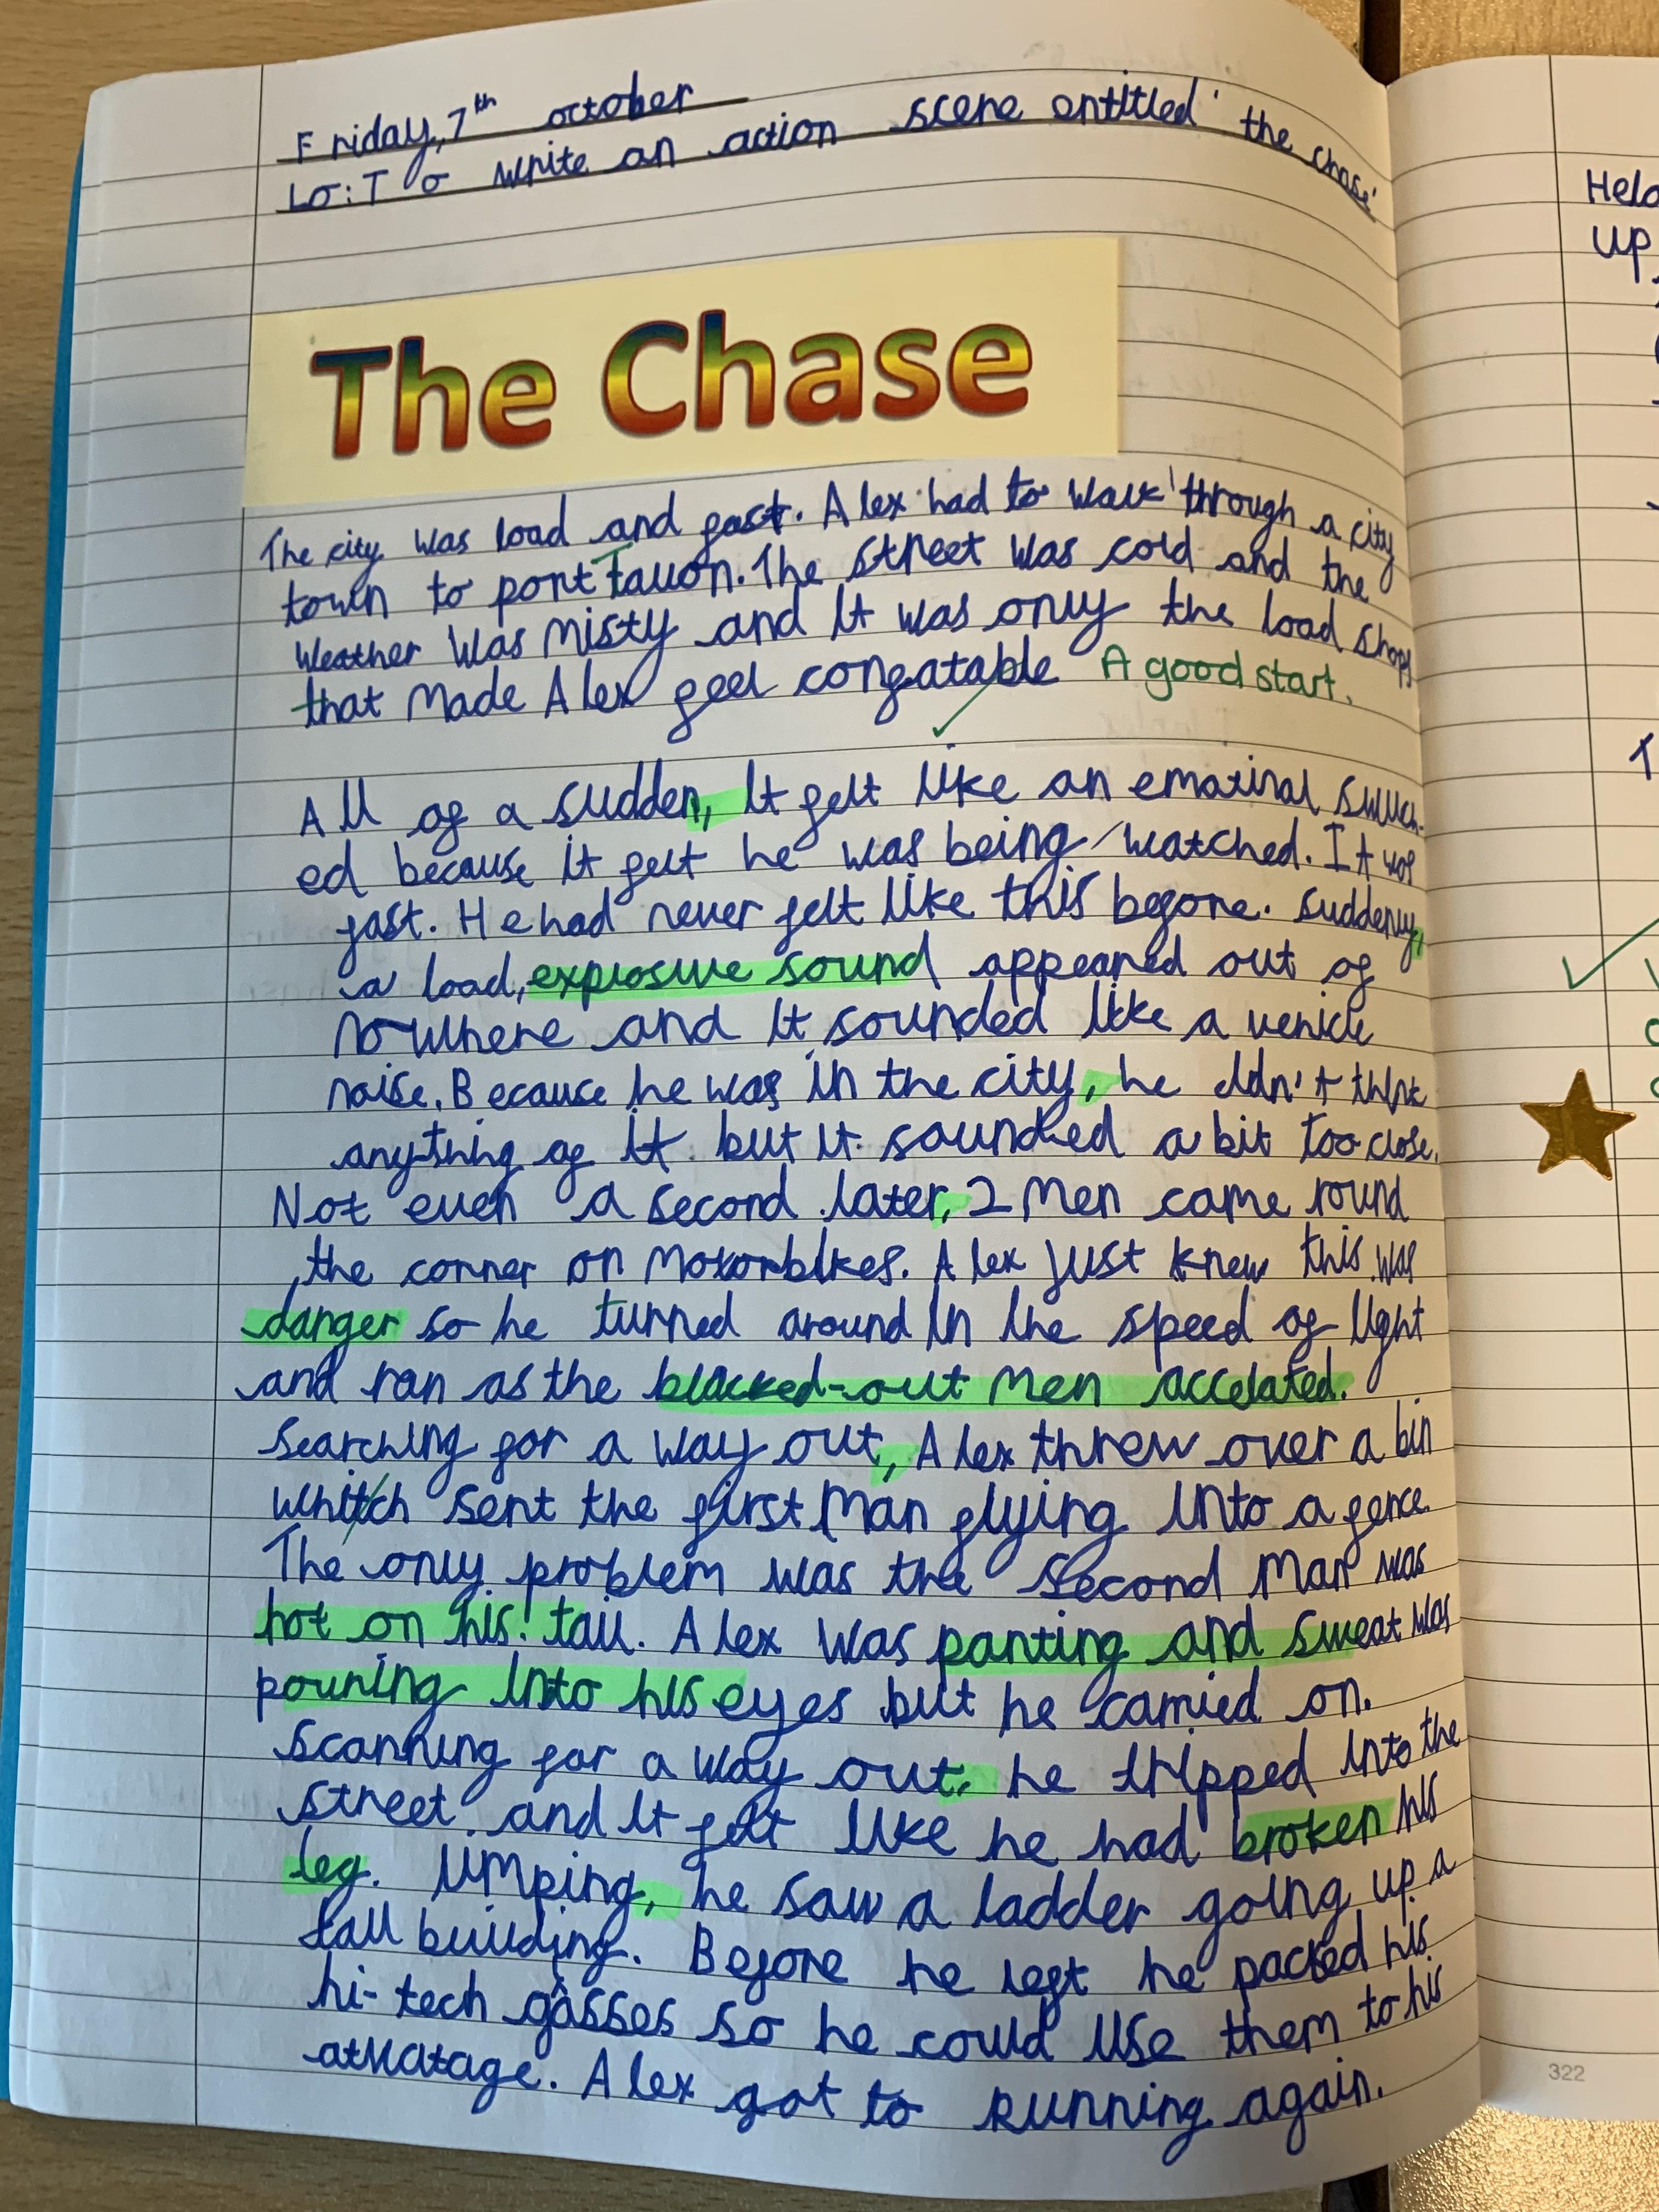 Friday, 7th october
Lo: To write an action scene entitled 'the chase'
The Chase
The city was load and fast. Alex had to walk through a city
town to port Tallon. The street was cold and the
weather was misty and it was only the load shops
that made Alex feel confatable A good start.
All of a sudden, it felt like an emotinal
ed because it felt he was being watched. It was
fast. He had never felt like this before. suddenly,
a load, explosive sound appeared out of
nowhere and it sounded like a vehicle
noise. Because he was in the city, he didn't think
anything of it but it sounded a bit too close.
Not even a second later, 2 men came round
the corner on motorbikes. Alex just knew this was
danger so he turned around in the speed of light
and ran as the blacked-out men accelated.
Searching for a way out, Alex threw over a bin
whitch sent the first man flying into a fence.
The only problem was the second man was
hot on his tail. Alex was panting and sweat was
pouring into his eyes but he carried on.
Scanning for a way out, he tripped into the
street and it felt like he had broken his
leg. limping, he saw a ladder going up a
tall building. Before he left he packed his
hi-tech gasses so he could use them to his
atvatage. Alex got to running again.
Held
up,
322